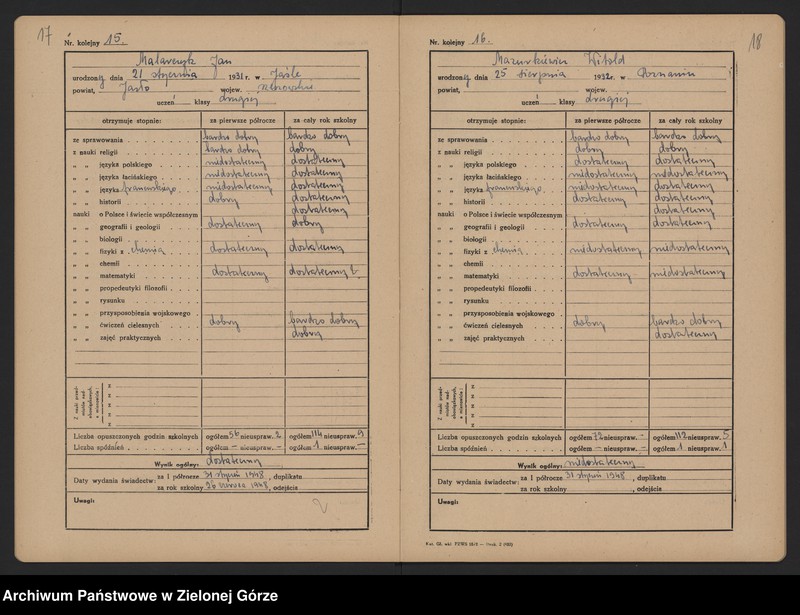 17
Nr. kolejny 15.
Matarczyk Jan
urodzony dnia 21 stycznia 1931 r. w Jaśle
powiat, Jasło wojew. rzeszowskie
uczeń klasy drugiej
otrzymuje stopnie: za pierwsze półrocze za cały rok szkolny
ze sprawowania bardzo dobry bardzo dobry
z nauki religii bardzo dobry dobry
„ „ języka polskiego niedostateczny dostateczny
„ „ języka łacińskiego niedostateczny dostateczny
„ „ języka francuskiego niedostateczny dostateczny
„ „ historii dobry dostateczny
nauki o Polsce i świecie współczesnym dostateczny
„ „ geografii i geologii dostateczny dobry
„ „ biologii
„ „ fizyki z chemią dostateczny dostateczny
„ „ chemii
„ „ matematyki dostateczny dostateczny
„ „ propedeutyki filozofii
„ „ rysunku
„ „ przysposobienia wojskowego
„ „ ćwiczeń cielesnych dobry bardzo dobry
„ „ zajęć praktycznych dobry
Liczba opuszczonych godzin szkolnych ogółem 56 nieuspraw. 2 ogółem 114 nieuspraw. 9
Liczba spóźnień ogółem – nieuspraw. – ogółem 1 nieuspraw. –
Wynik ogólny: dostateczny
Daty wydania świadectw: za I półrocze 31 styczeń 1948, duplikatu
za rok szkolny 26 czerwca 1948, odejścia
Uwagi:
18
Nr. kolejny 16.
Mazurkiewicz Witold
urodzony dnia 25 sierpnia 1932 r. w Poznaniu
powiat, wojew.
uczeń klasy drugiej
otrzymuje stopnie: za pierwsze półrocze za cały rok szkolny
ze sprawowania bardzo dobry bardzo dobry
z nauki religii dobry dobry
„ „ języka polskiego dostateczny dostateczny
„ „ języka łacińskiego niedostateczny niedostateczny
„ „ języka francuskiego niedostateczny dostateczny
„ „ historii dostateczny dostateczny
nauki o Polsce i świecie współczesnym dostateczny
„ „ geografii i geologii dostateczny dostateczny
„ „ biologii
„ „ fizyki z chemią niedostateczny niedostateczny
„ „ chemii
„ „ matematyki dostateczny niedostateczny
„ „ propedeutyki filozofii
„ „ rysunku
„ „ przysposobienia wojskowego
„ „ ćwiczeń cielesnych dobry bardzo dobry
„ „ zajęć praktycznych dostateczny
Liczba opuszczonych godzin szkolnych ogółem 72 nieuspraw. – ogółem 112 nieuspraw. 5
Liczba spóźnień ogółem – nieuspraw. – ogółem 1 nieuspraw. 1
Wynik ogólny: niedostateczny
Daty wydania świadectw: za I półrocze 31 styczeń 1948, duplikatu
za rok szkolny , odejścia
Uwagi:
Archiwum Państwowe w Zielonej Górze